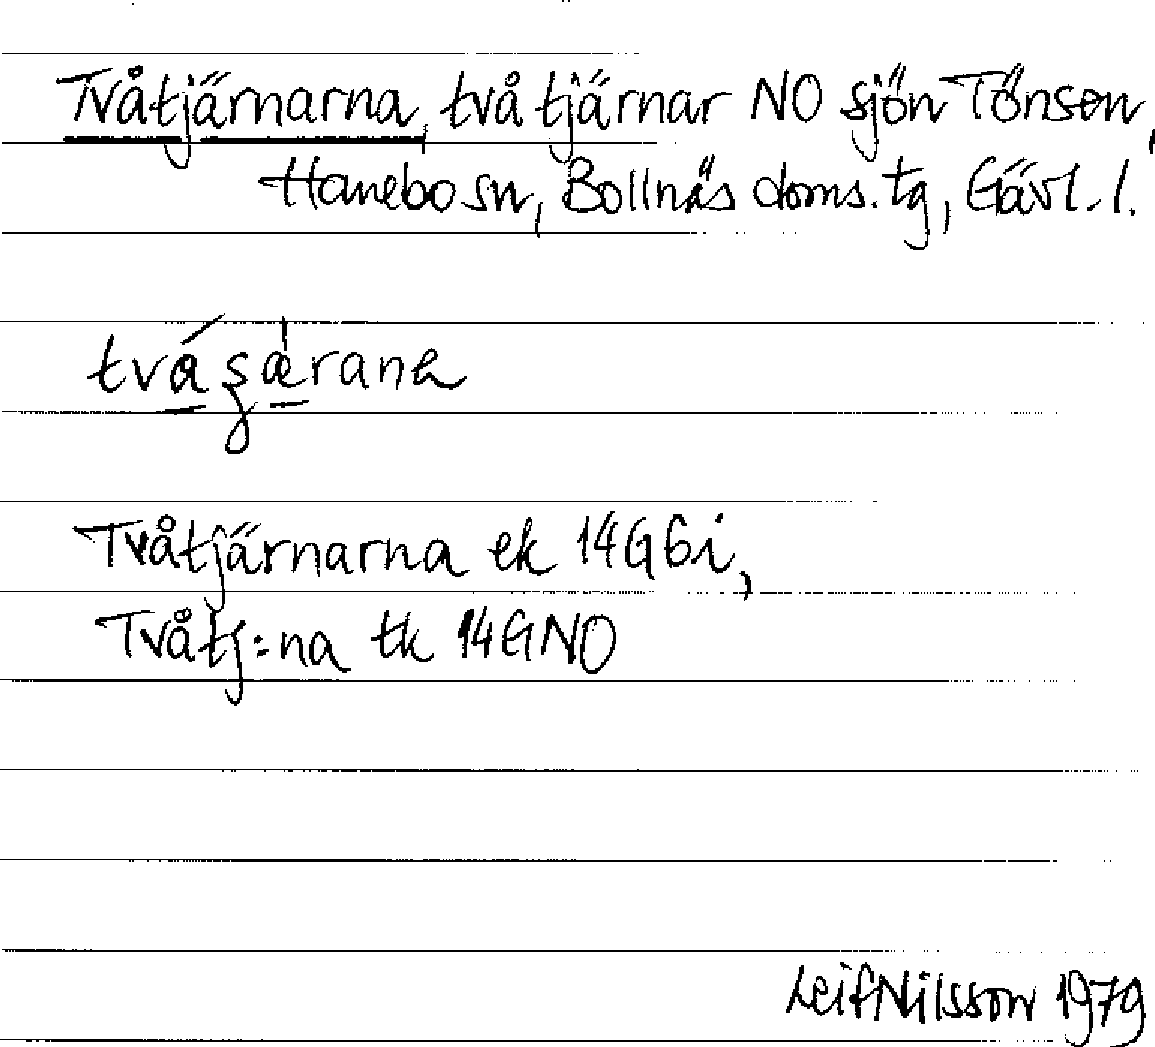 Tvåtjärnarna, två tjärnar NO sjön Tönsen,
Hanebo sn, Bollnäs doms. tg, Gävl. l.
tvásǽrana
Tvåtjärnarna ek 14G6i,
Tvåtj:na tk 14GNO
Leif Nilsson 1979